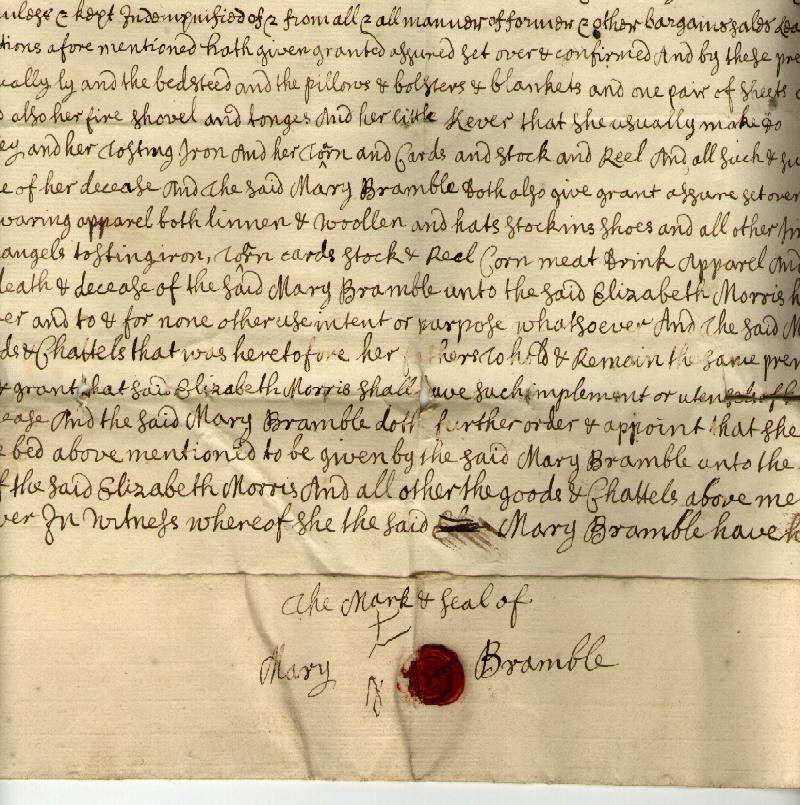 & kept Indempnified of & from all & all manner of former & other bargains sales Lea
tions afore mentioned hath given granted assured set over & confirmed And by these pre
ually ly and the bedsteed and the pillows & bolsters & blankets and one pair of sheets
also her fire shovel and tonges And her little Kever that she usually make do
ey and her Tosting Iron And her Torn and Cards and stock and Reel And all such & su
e of her decease And The said Mary Bramble doth also give grant assure set over
waring apparel both linnen & Woollen and hats stockins shoes and all other Im
angels tosting iron, Torn cards stock & Reel Corn meat Drink Apparel And
death & decease of the said Mary Bramble unto the said Elizabeth Morris h
er and to & for none other use intent or purpose whatsoever And The said M
ds & Chattels that was heretofore her To hold & Remain the same prem
& grant that said Elizabeth Morris shall have such implement or
ease And the said Mary Bramble doth further order & appoint that she
bed above mentioned to be given by the said Mary Bramble unto the
f the said Elizabeth Morris And all other the goods & Chattels above me
ver In Witness whereof she the said Mary Bramble have h
The Mark & seal of
Mary Bramble